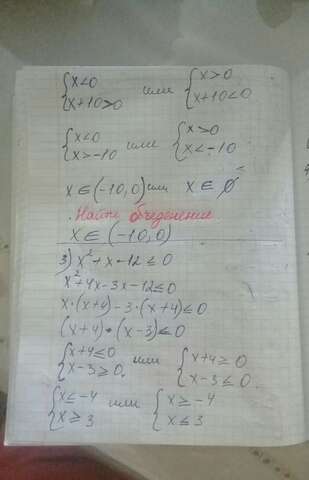 {x<0 или {x>0
{x+10>0 {x+10<0
{x<0 или {x>0
{x>-10 {x<-10
x∈(-10,0) или x∈∅
Найти объеденение
x∈(-10,0)
3) x²+x-12≤0
x²+4x-3x-12≤0
x·(x+4)-3·(x+4)≤0
(x+4)·(x-3)≤0
{x+4≤0 или {x+4≥0
{x-3≥0, {x-3≤0.
{x≤-4 или {x≥-4
{x≥3 {x≤3